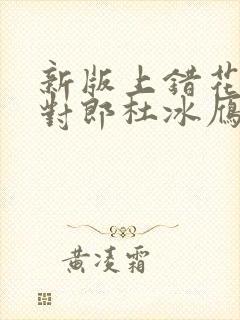 新版上錯花
對郎杜冰雁
黃凌霜